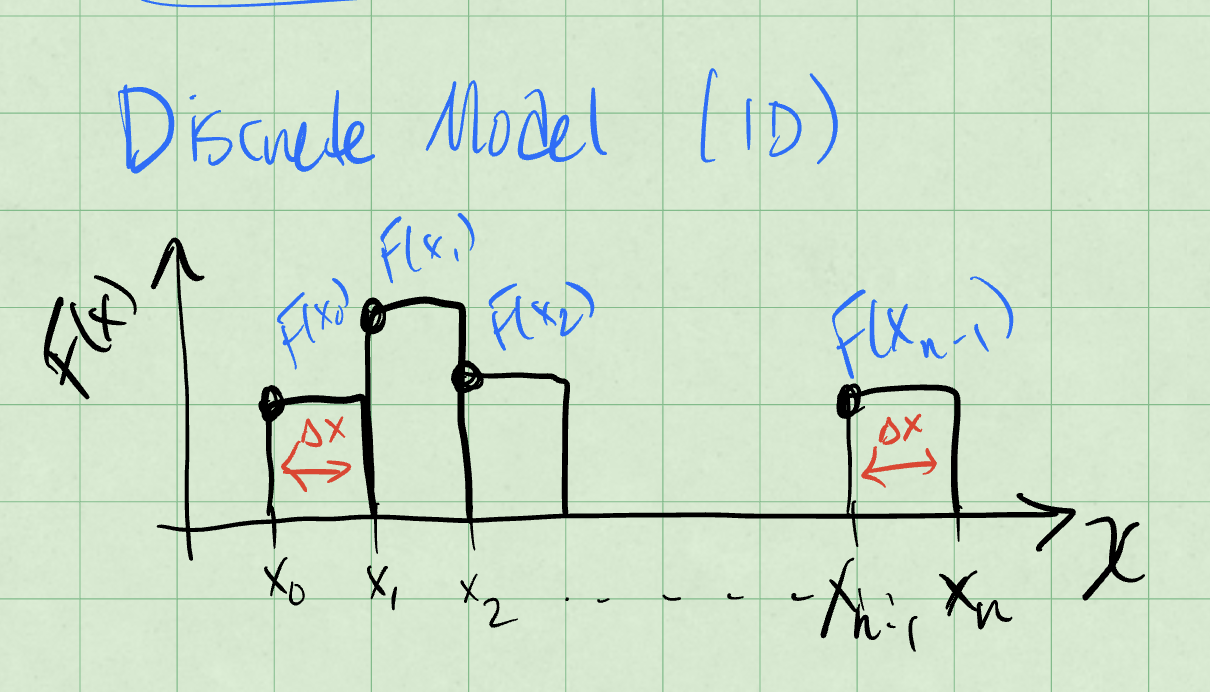 Discrete Model (1D)
F(x₁)
F(x₀)
F(x₂)
F(xₙ₋₁)
F(x)
Δx
Δx
x₀ x₁ x₂ . - - - - xₙ₋₁ xₙ
x